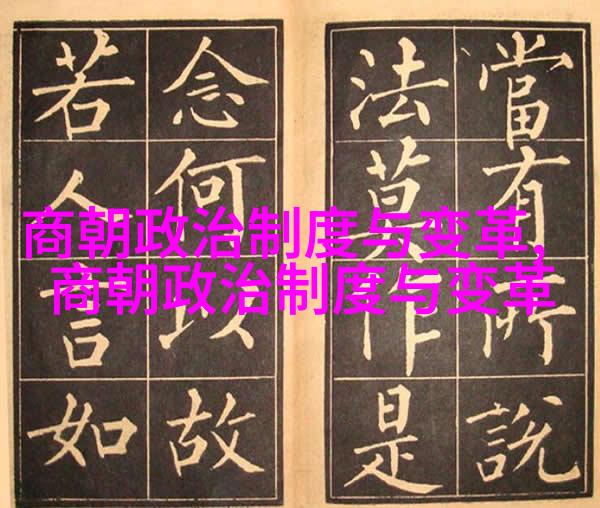 商朝政治制度与变革,
商朝政治制度与变革
當有所說
法莫作是
念何以故
若人言如